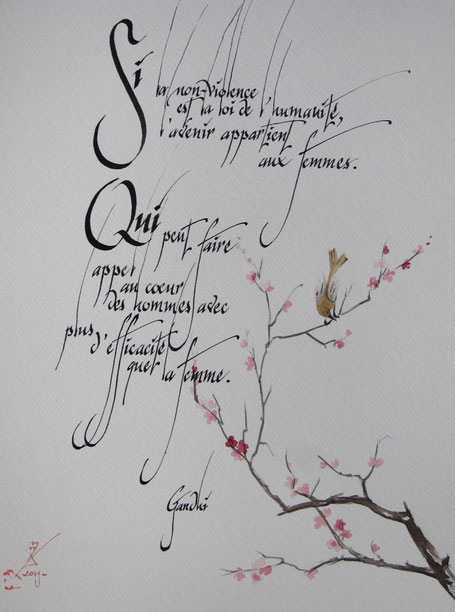 Si la non-violence
est la loi de l'humanité,
l'avenir appartient
aux femmes.
Qui peut faire
appel
au cœur
des hommes avec
plus
d'efficacité
que la femme.
Gandhi
2019